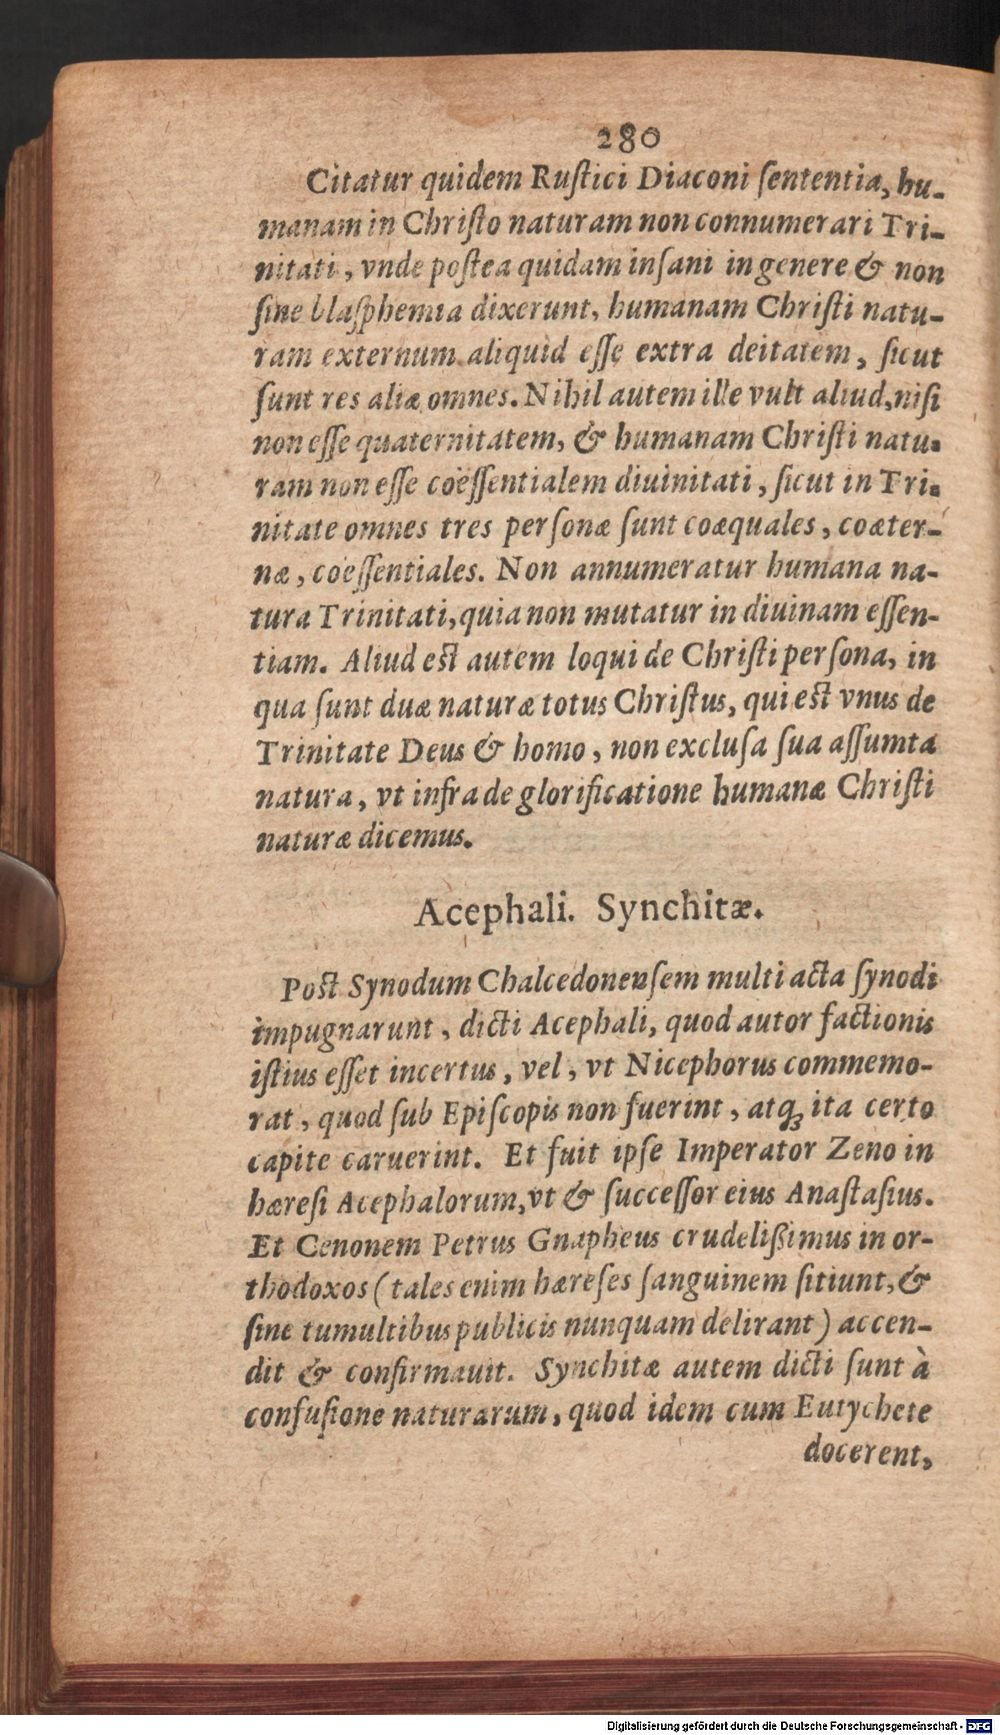 280
Citatur quidem Ruſtici Diaconi ſententia, hu-
manam in Chriſto naturam non connumerari Tri-
nitati, vnde poſtea quidam inſani in genere & non
ſine blaſphemia dixerunt, humanam Chriſti natu-
ram externum aliquid eſſe extra deitatem, ſicut
ſunt res aliæ omnes. Nihil autem ille vult aliud, niſi
non eſſe quaternitatem, & humanam Chriſti natu-
ram non eſſe coëſſentialem diuinitati, ſicut in Tri-
nitate omnes tres perſonæ ſunt coæquales, coæter-
næ, coëſſentiales. Non annumeratur humana na-
tura Trinitati, quia non mutatur in diuinam eſſen-
tiam. Aliud eſt autem loqui de Chriſti perſona, in
qua ſunt duæ naturæ totus Chriſtus, qui eſt vnus de
Trinitate Deus & homo, non excluſa ſua aſſumta
natura, vt infra de glorificatione humanæ Chriſti
naturæ dicemus.
Acephali. Synchitæ.
Poſt Synodum Chalcedonenſem multi acta ſynodi
impugnarunt, dicti Acephali, quod autor factionis
iſtius eſſet incertus, vel, vt Nicephorus commemo-
rat, quod ſub Epiſcopis non fuerint, atq́ꝫ ita certo
capite caruerint. Et fuit ipſe Imperator Zeno in
hæreſi Acephalorum, vt & ſucceſſor eius Anaſtaſius.
Et Cenonem Petrus Gnapheus crudelißimus in or-
thodoxos (tales enim hæreſes ſanguinem ſitiunt, &
ſine tumultibus publicis nunquam delirant) accen-
dit & confirmauit. Synchitæ autem dicti ſunt à
confuſione naturarum, quod idem cum Eutychete
docerent,
Digitalisierung gefördert durch die Deutsche Forschungsgemeinschaft - DFG